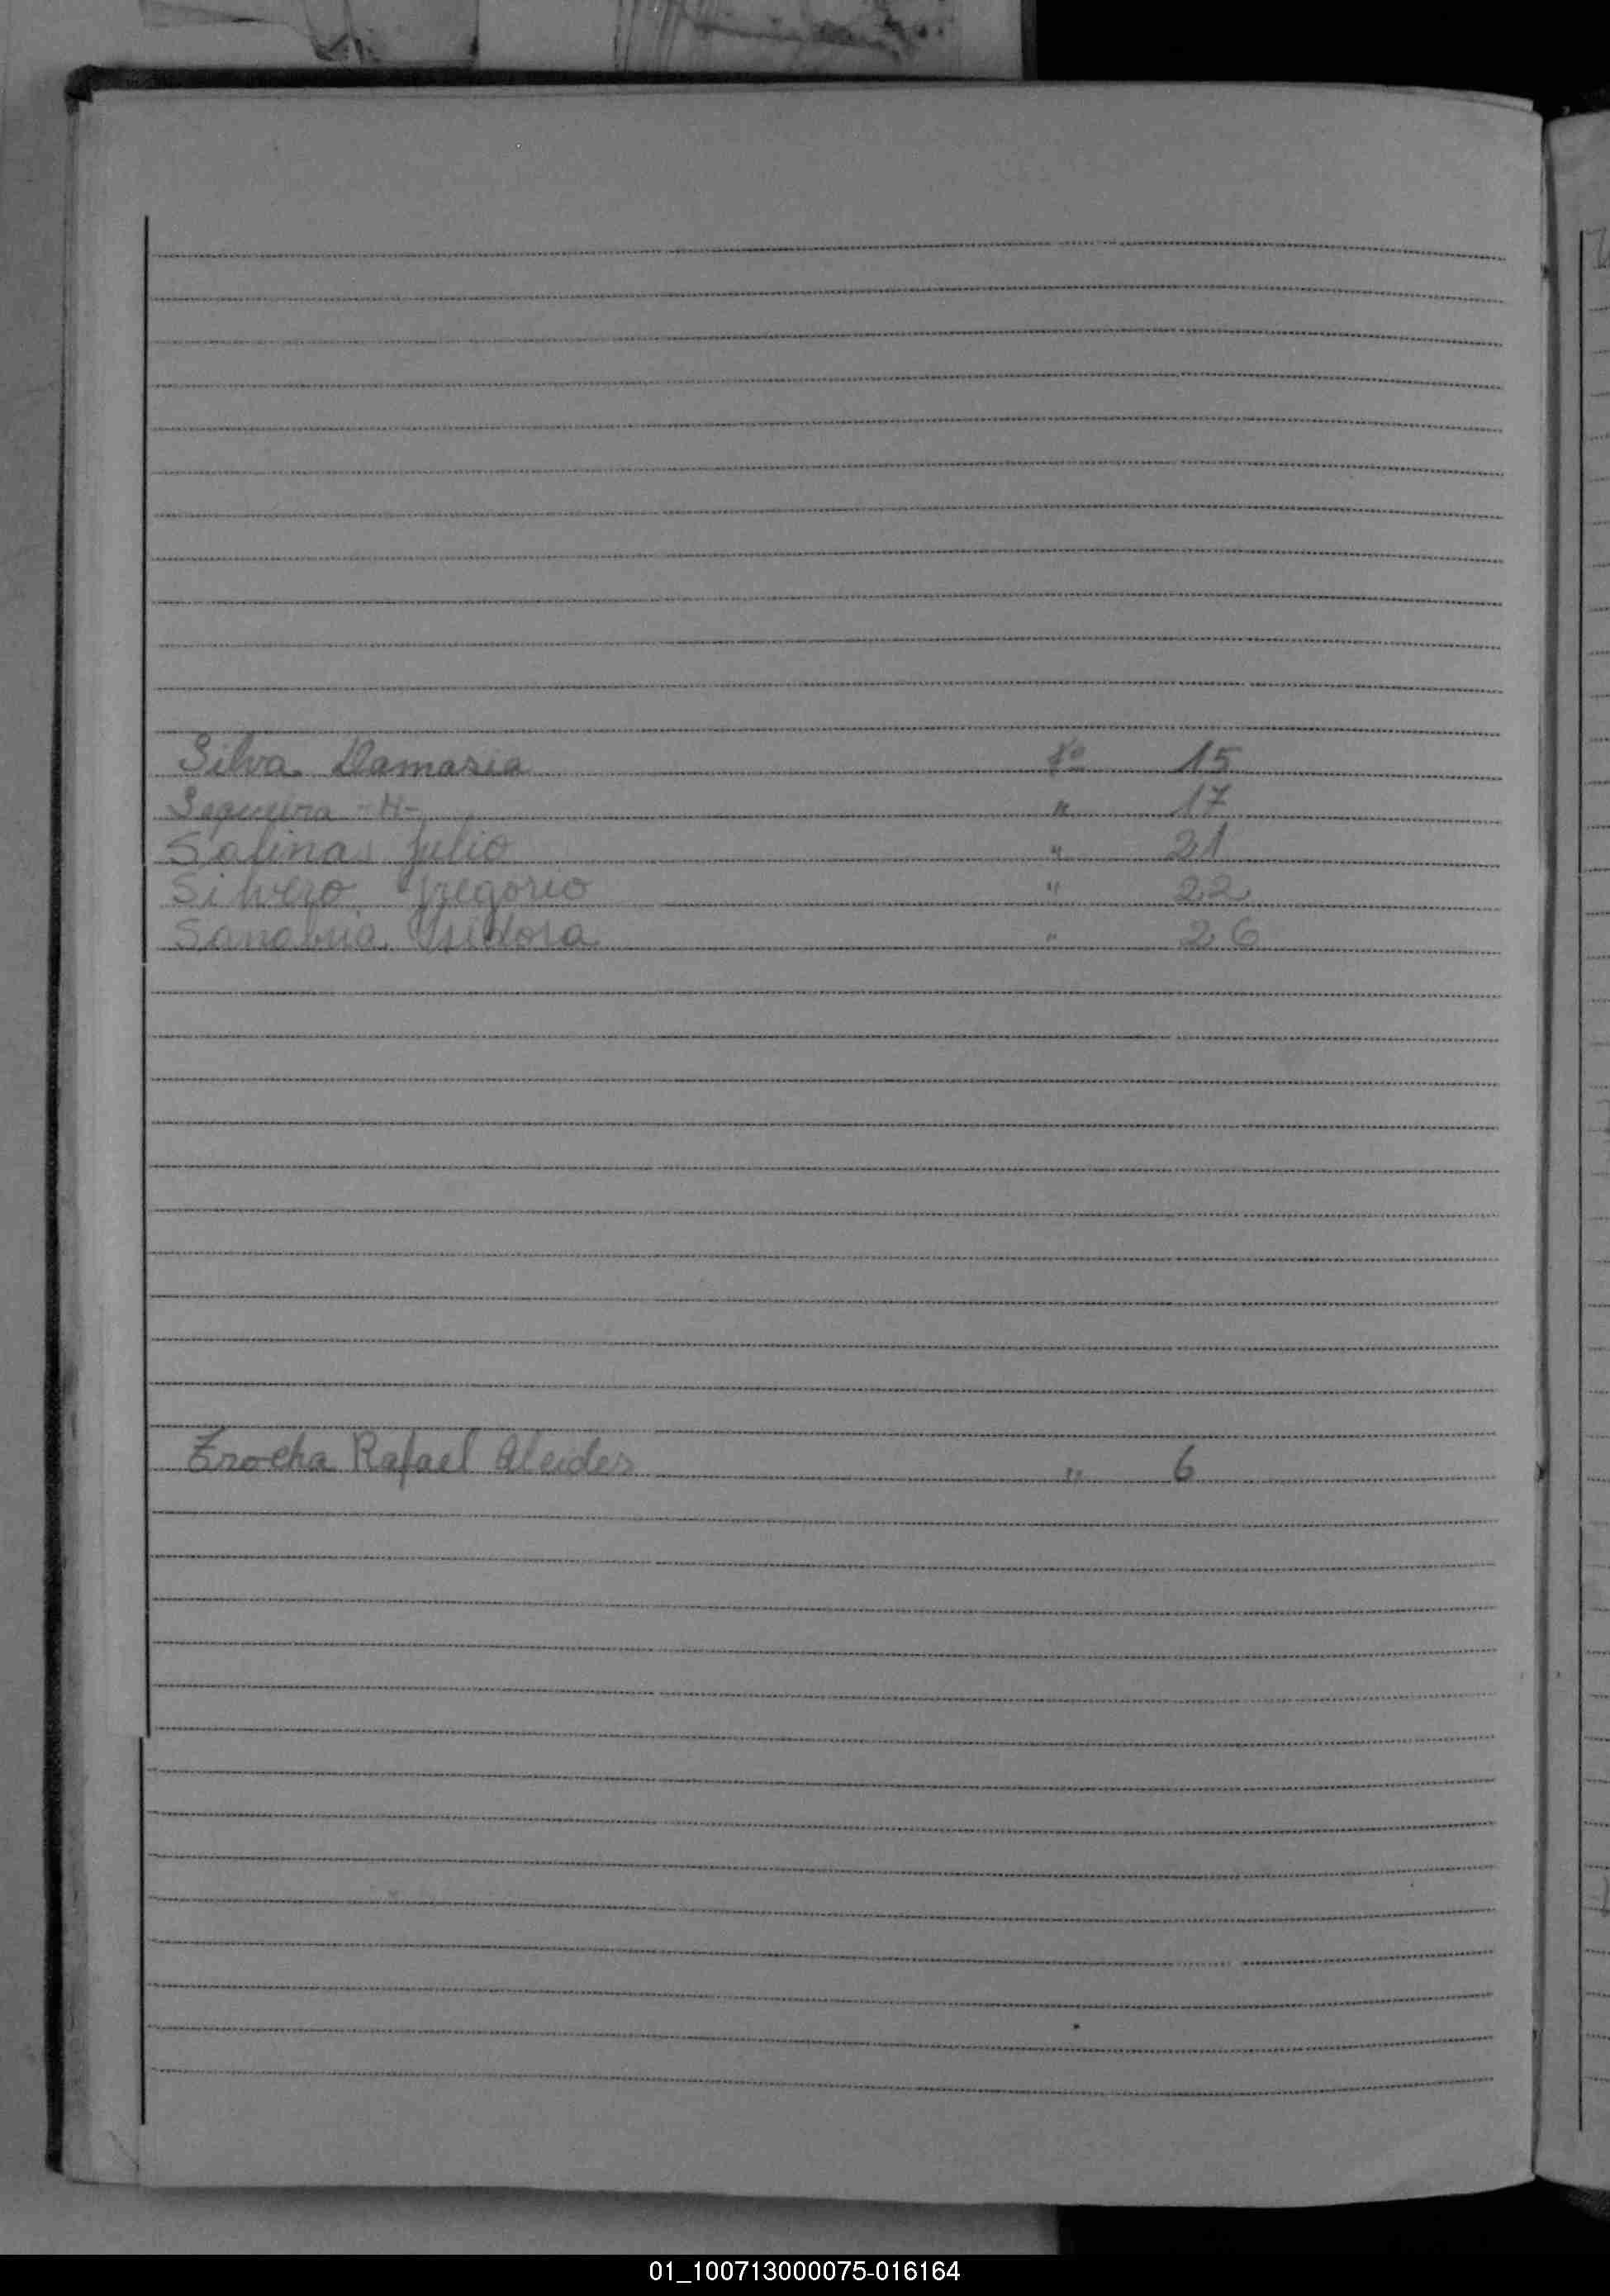 Silva Damasia Fº 15
Sequeira -N- " 17
Salinas Julio " 21
Silvero Gregorio " 22
Sanabria Isidora " 26
Trocha Rafael Alcides " 6
01_100713000075-016164